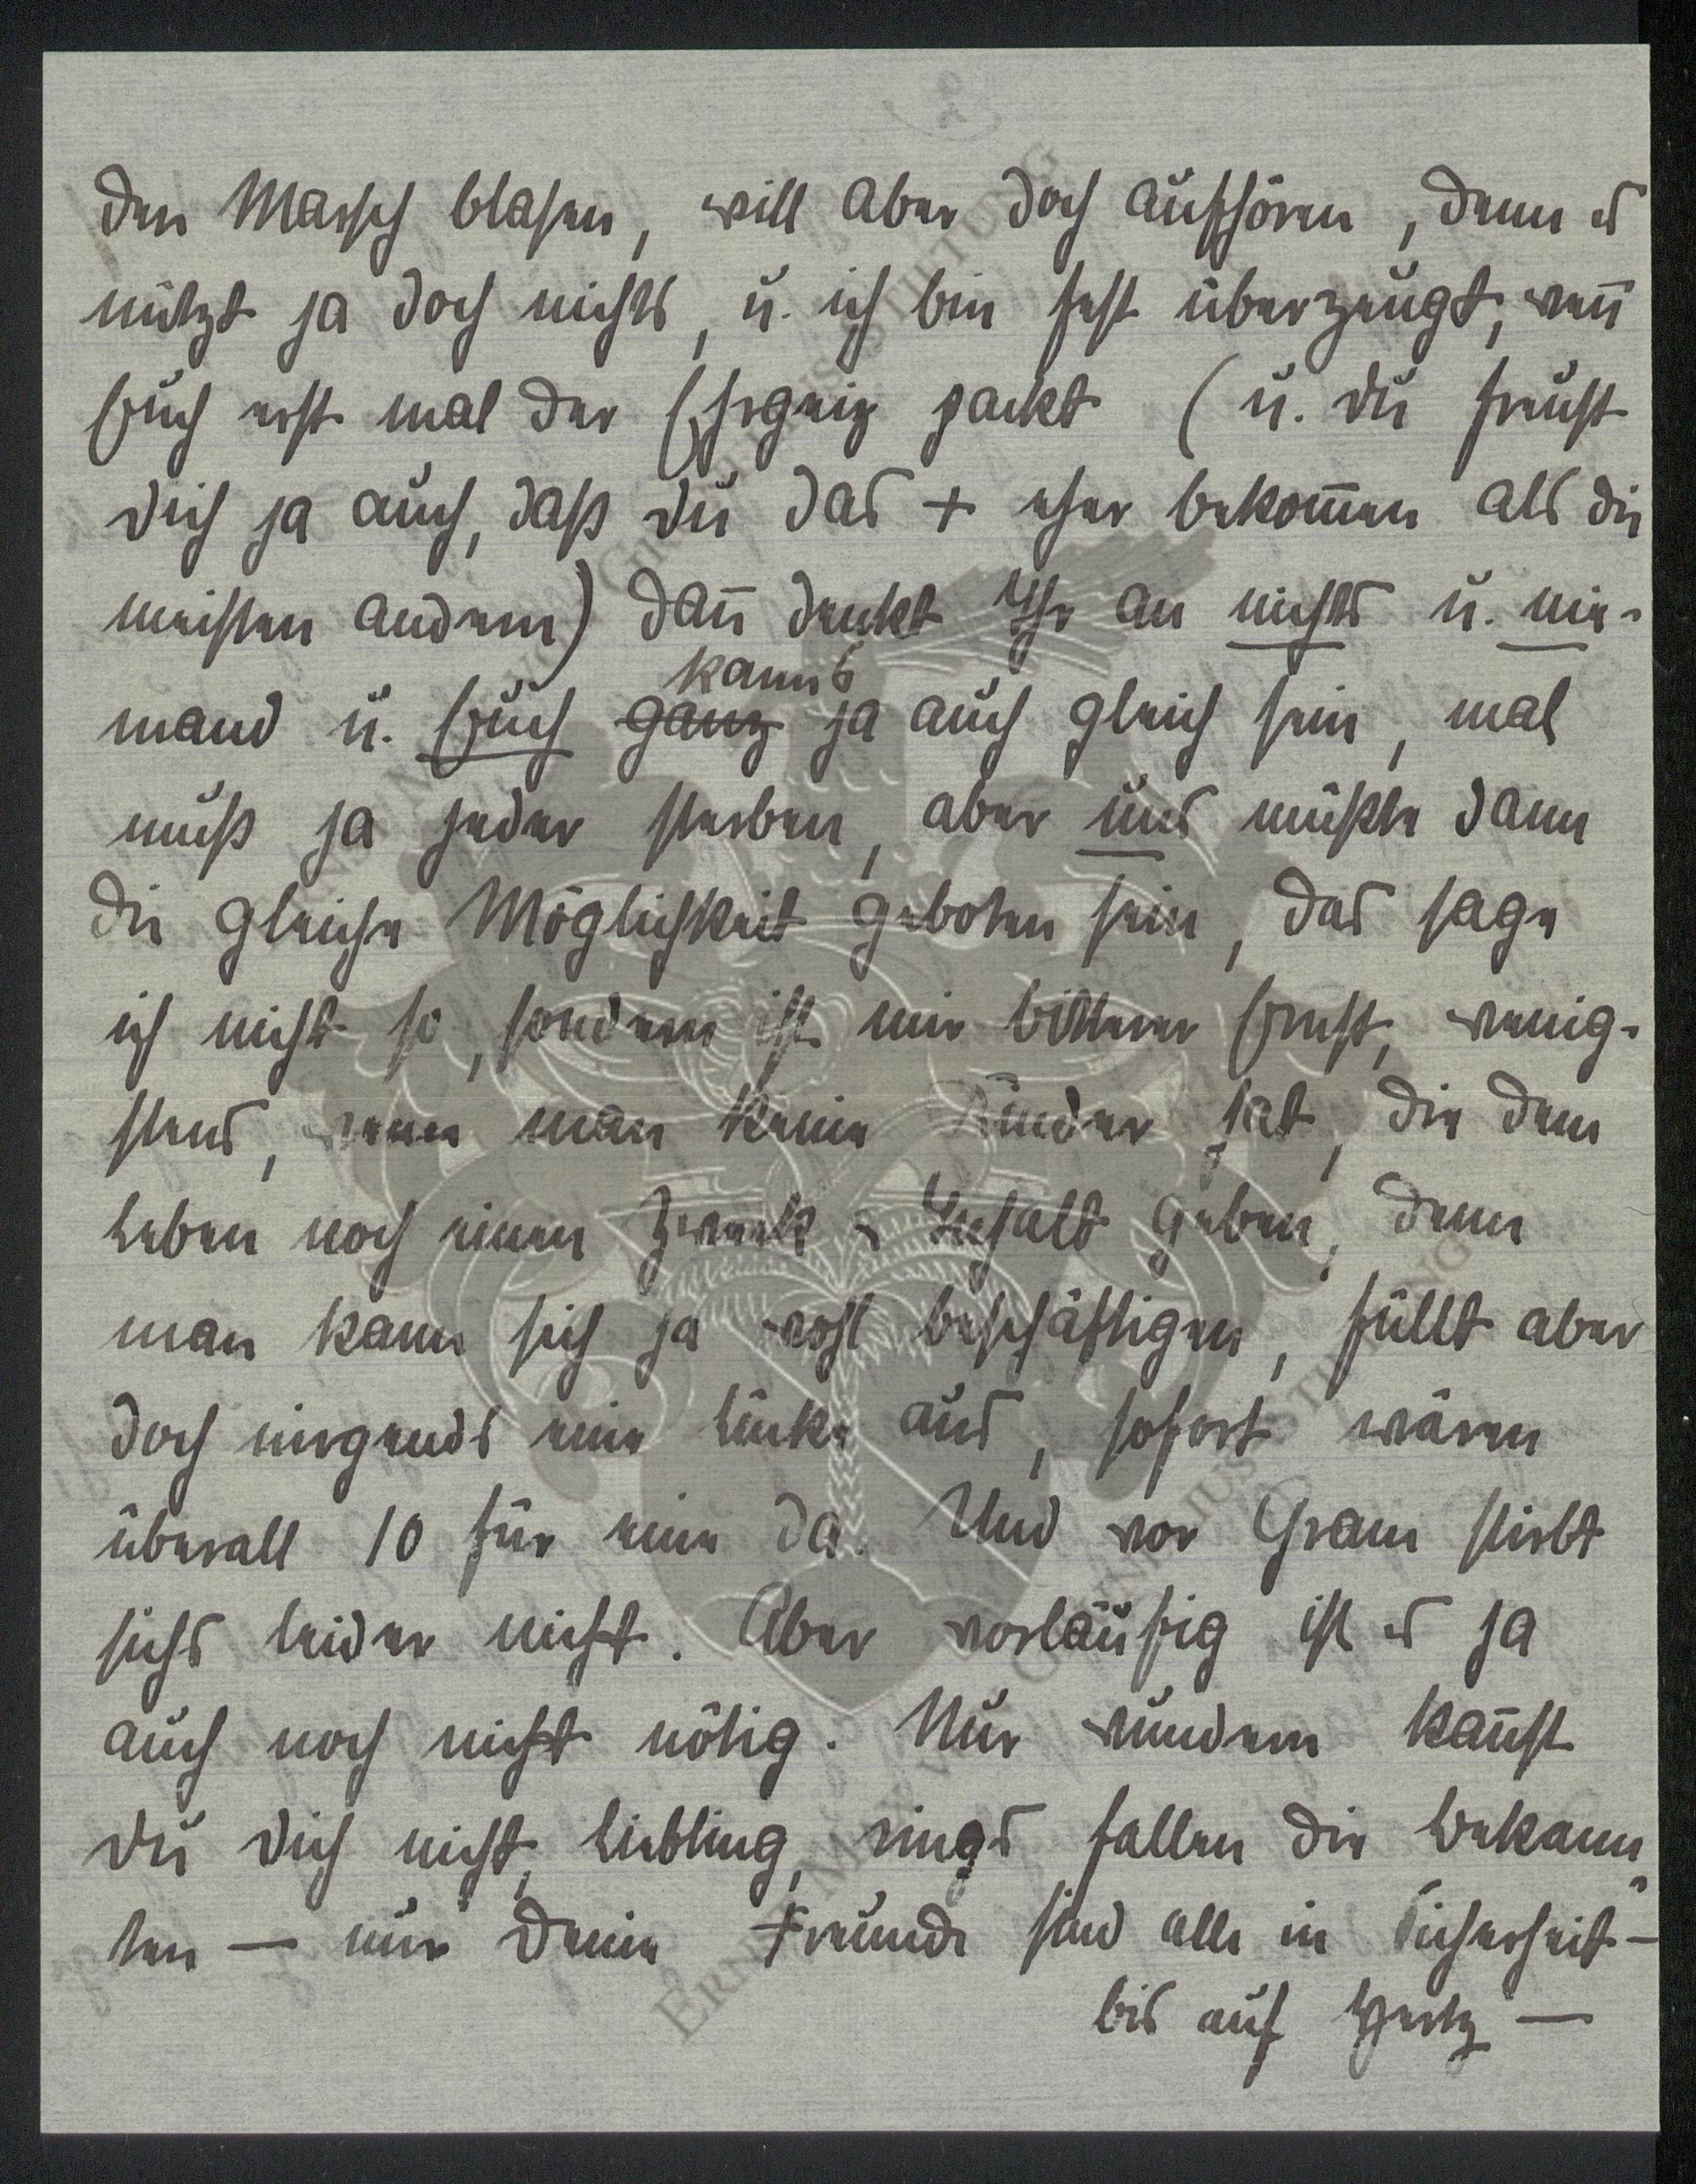 den Marsch blasen, will aber doch aufhören, denn es
nützt ja doch nichts, u. ich bin fest überzeugt, wen̄
Euch erst mal der Ehrgeiz packt (u. Du freust
Dich ja auch, daß Du das + eher bekom̄en als die
meisten andern) dan̄ denkt Ihr an nichts u. nie-
mand u. Euch ganz kanns ja auch gleich sein, mal
muß ja jeder sterben, aber uns müßte dann
die gleiche Möglichkeit geboten sein, das sage
ich nicht so, sondern ist mir bitterer Ernst, wenig-
stens, wenn man keine Kinder hat, die dem
Leben noch einen Zweck u Inhalt geben, denn
man kann sich ja wohl beschäftigen, füllt aber
doch nirgends eine Lücke aus, sofort wären
überall 10 für eine da. Und vor Gram stirbt
sichs leider nicht. Aber vorläufig ist es ja
auch noch nicht nötig. Nur wundern kan̄st
Du Dich nicht, Liebling, rings fallen die Bekann-
ten — nur Deine Freunde sind alle in Sicherheit —
bis auf Hertz —